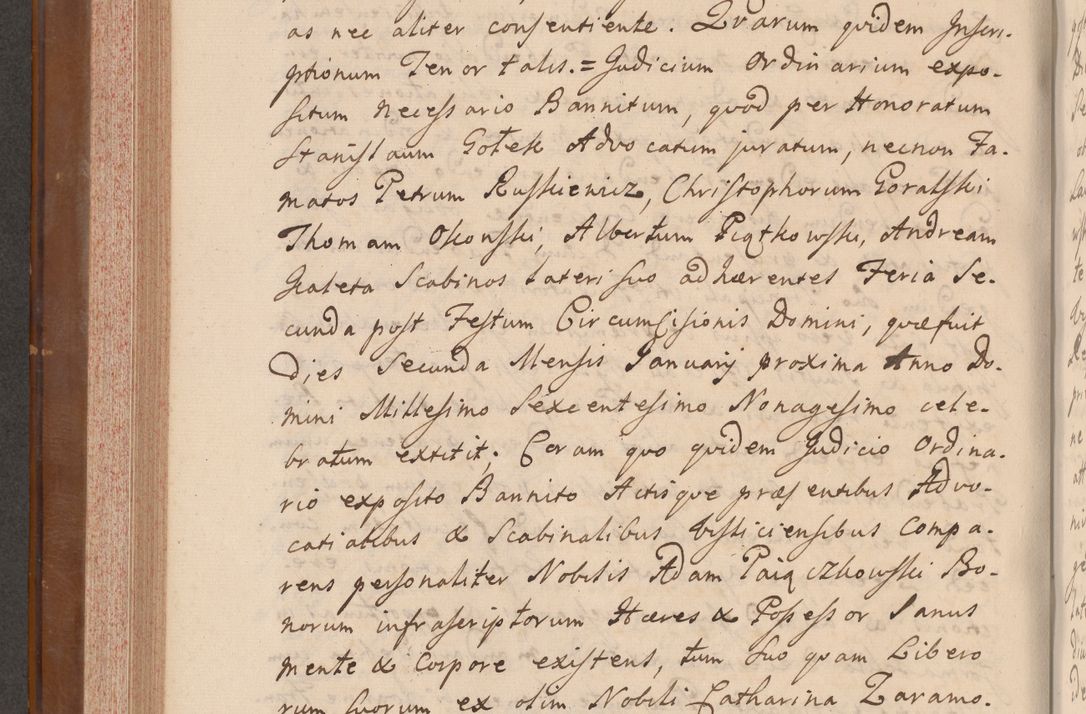 as nec aliter consentiente. Qvarum qvidem Inscri-
ptionum Tenor talis.= Judicium Ordinarium expo-
situm Necessario Bannitum, qvod per Honoratum
Stanislaum Gołek Advocatum juratum, necnon Fa-
matos Petrum Ruskiewicz, Christophorum Goralski
Thomam Okonski, Albertum Piątkowski, Andream
Gałeta Scabinos Lateri suo adhærentes Feria Se-
cunda post Festum Circumcisionis Domini, quæ fuit
Dies Secunda Mensis Januarij proxima Anno Do-
mini Millesimo Sexcentesimo Nonagesimo cele-
bratum extitit; Coram quo qvidem Judicio Ordina-
rio exposito Bannito Actisque præsentibus Advo-
catialibus & Scabinalibus Visliciensibus Compa-
rens personaliter Nobilis Adam Paiączkowski Bo-
norum infrascriptorum Hæres & Possessor Sanus
mente & Corpore existens, tum suo qvam Libero
rum suorum ex olim Nobili Catharina Zaramo-